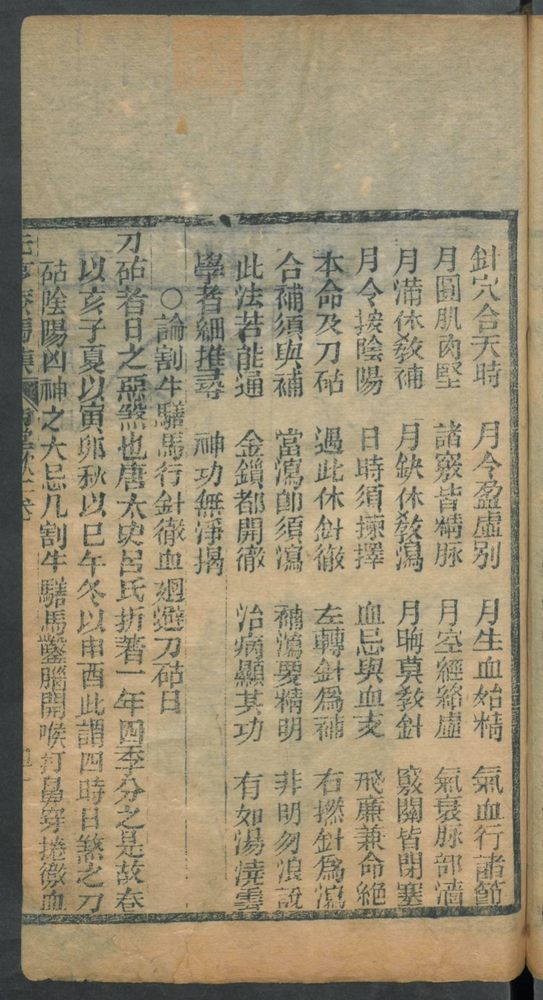 針穴合天時　月令盈虛別　月生血始精　氣血行諸節
月圓肌肉堅　諸竅皆精脉　月空經絡虛　氣衰脉部濇
月滿休敎補　月缺休敎瀉　月晦莫敎針　竅關皆閉塞
月令按陰陽　日時須揀擇　血忌與血支　飛廉兼命絕
本命及刀砧　遇此休針徹　左轉針爲補　右撚針爲瀉
合補須與補　當瀉卽須瀉　補瀉要精明　非明勿浪說
此法若能通　金鎖都開徹　治病顯其功　有如湯澆雪
學者細推尋　神功無淨揭
○論割牛騸馬行針徹血𢌞避刀砧日
刀砧者日之惡煞也唐太史呂氏折著一年四季分之是故春
以亥子夏以寅卯秋以巳午冬以申酉此謂四時日煞之刀
砧陰陽凶神之大忌凡割牛騸馬鑿腦開喉打鼻穿捲徹血